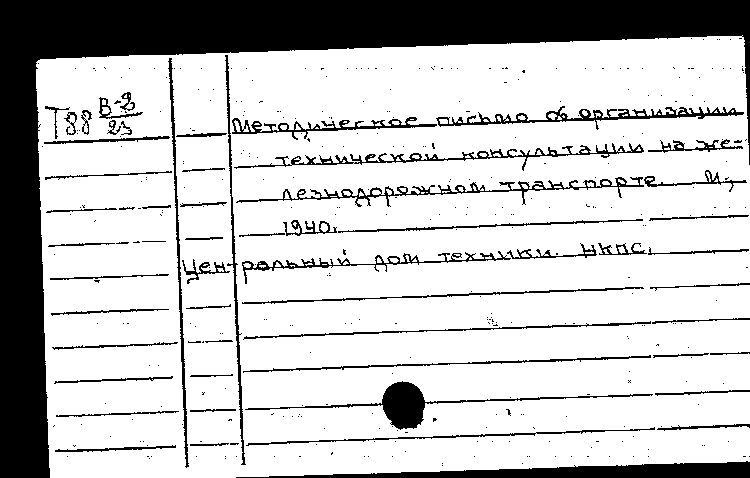 Т88 В-3/23
Методическое письмо об организации
технической консультации на же-
лезнодорожном транспорте. М.,
1940.
Центральный дом техники НКПС.